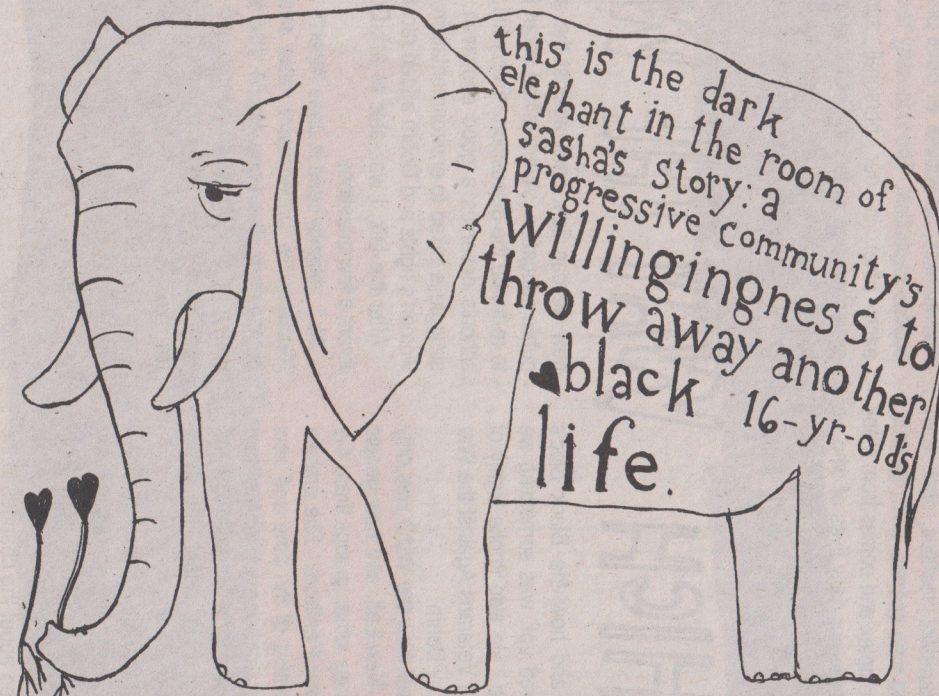 this is the dark
elephant in the room of
sasha's story: a
progressive community's
Willingingness to
throw away another
♥black 16-yr-old's
life.